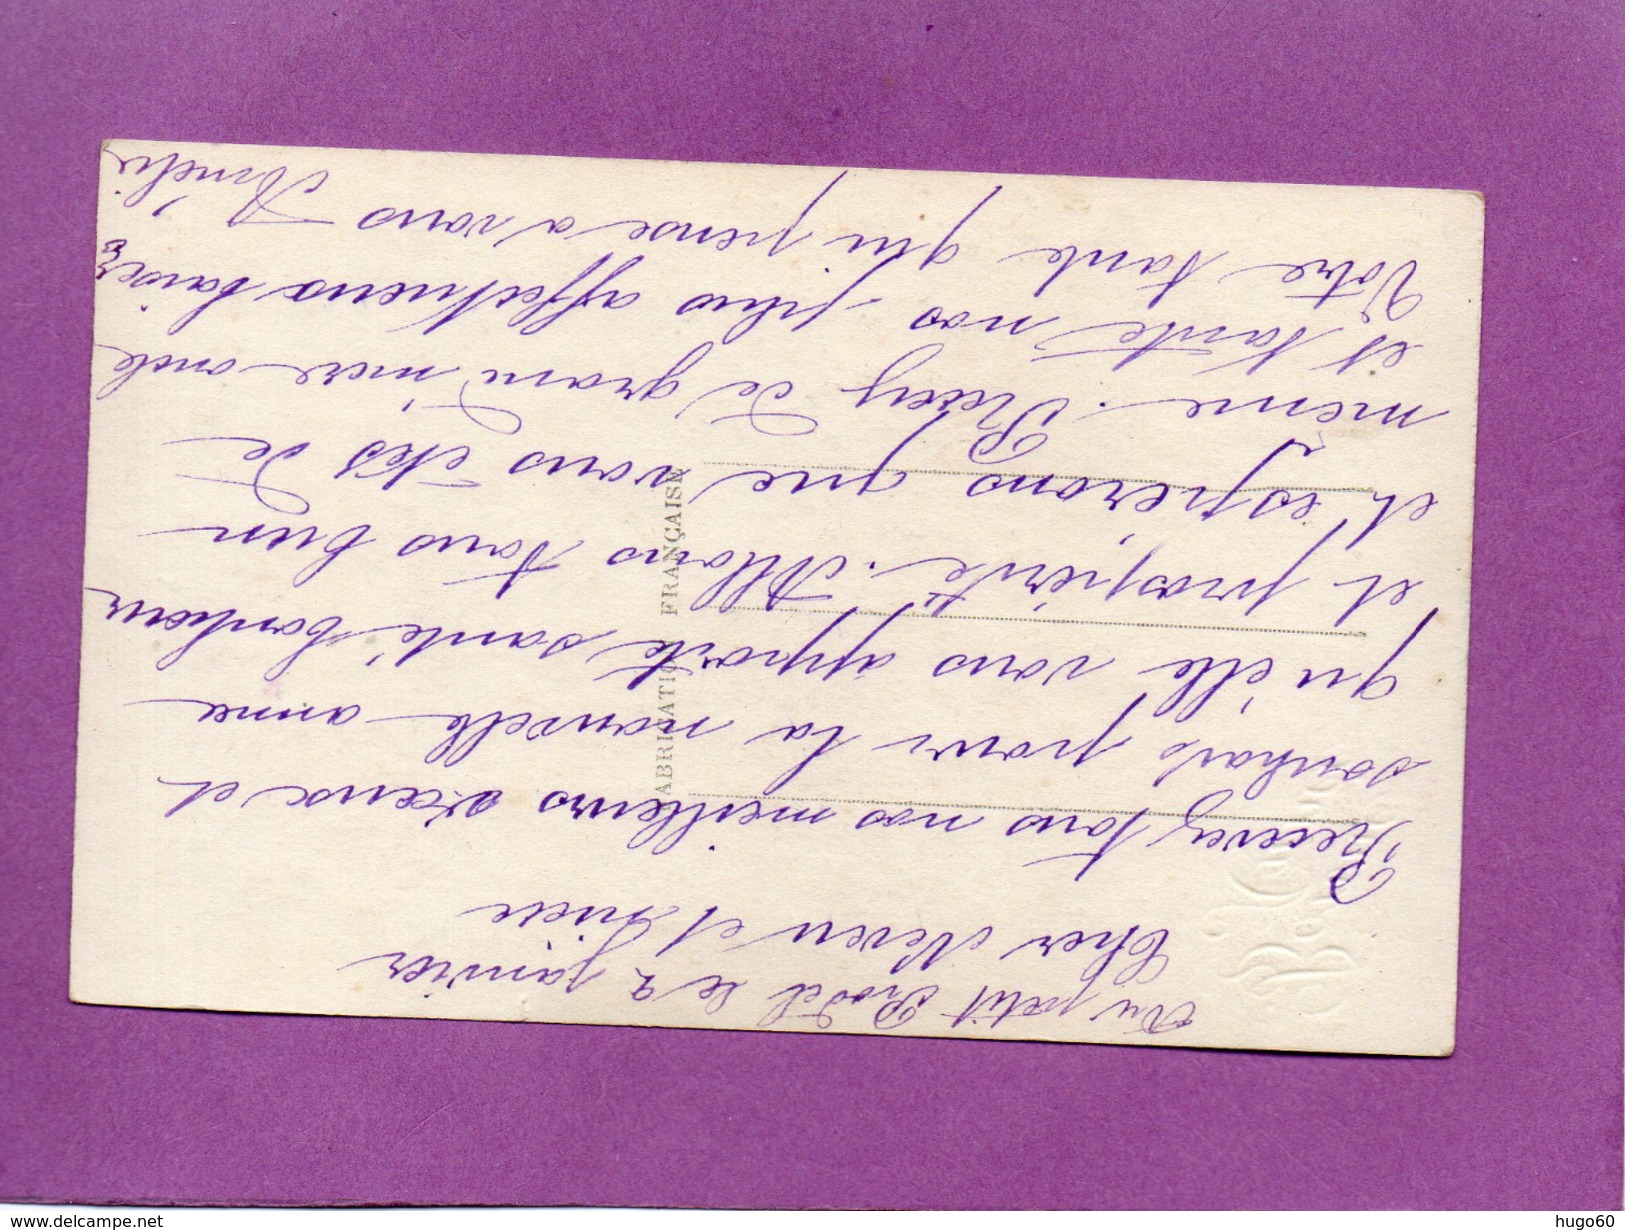 Au petit Prodel le 2 janvier
Cher Neveu et Nièce
Recevez tous nos meilleurs vœux et
souhaits pour la nouvelle anne
qu'elle vous apporte santé bonheur
et prospérité. Allons tous bien
et espérons que vous êtes de
même. Recey de grand'mère oncle
et tante nos plus affectueux baisers
Votre tante qui pense a vous Amélie
FABRICATION FRANÇAISE
http://www.delcampe.net
hugo60